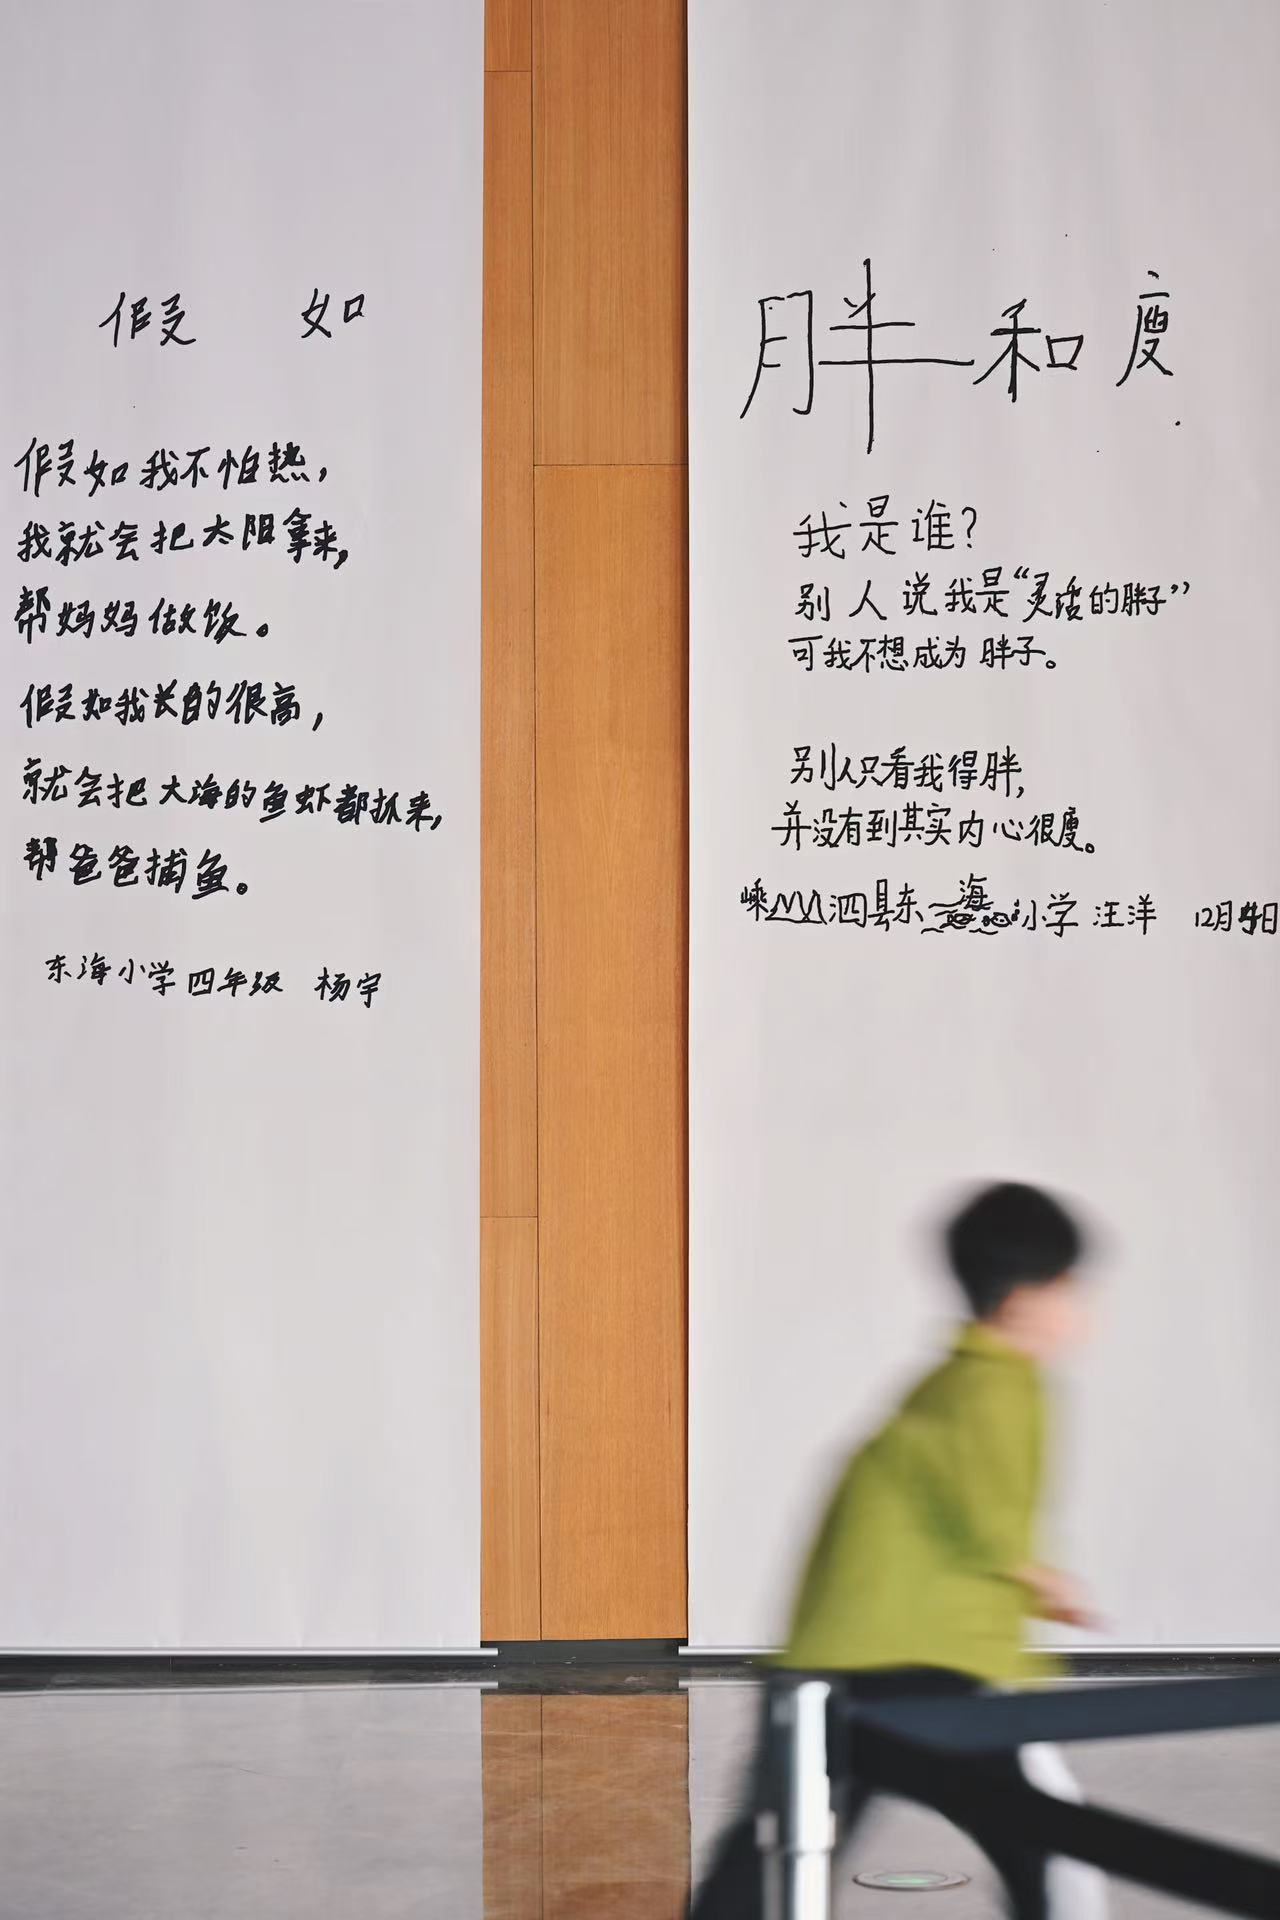 假如
假如我不怕热，
我就会把太阳拿来，
帮妈妈做饭。
假如我长的很高，
就会把大海的鱼虾都抓来，
帮爸爸捕鱼。
东海小学四年级 杨宇
胖和廋
我是谁？
别人说我是“灵活的胖子”
可我不想成为胖子。
别人只看我得胖，
并没有到其实内心很廋。
嵊泗县东海小学 汪洋 12月日